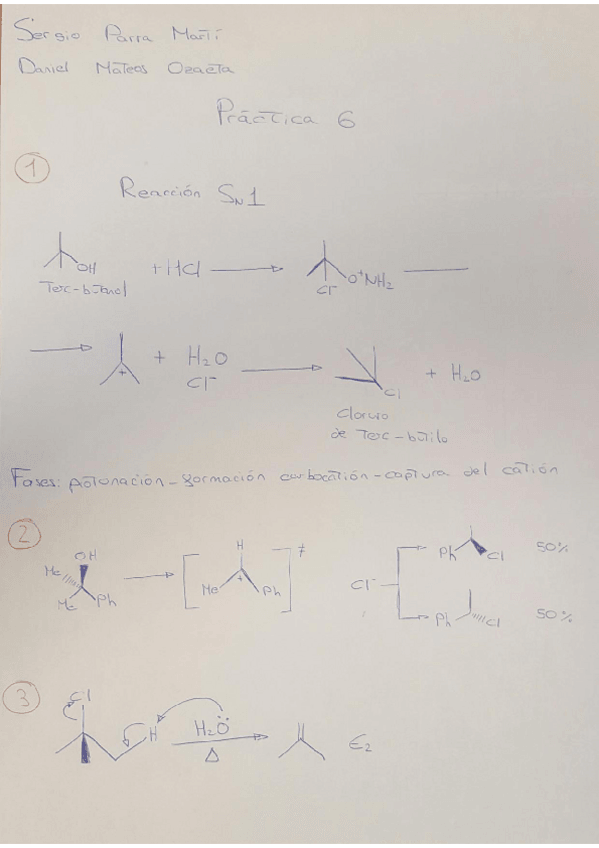 Sergio Parra Martí
Daniel Mateos
Práctica 6
1
Reacción SN1
OH + HCl O⁺NH₂
Cl⁻
Terc-butanol
+ + H₂O Cl + H₂O
Cl⁻
Cloruro
de Terc-butilo
Fases: protonación - formación carbocatión - captura del catión
2
OH H ‡ Ph Cl 50%
Me + Cl⁻
Me Ph Me Ph Ph Cl 50%
3
Cl
H H₂Ö E₂
Δ